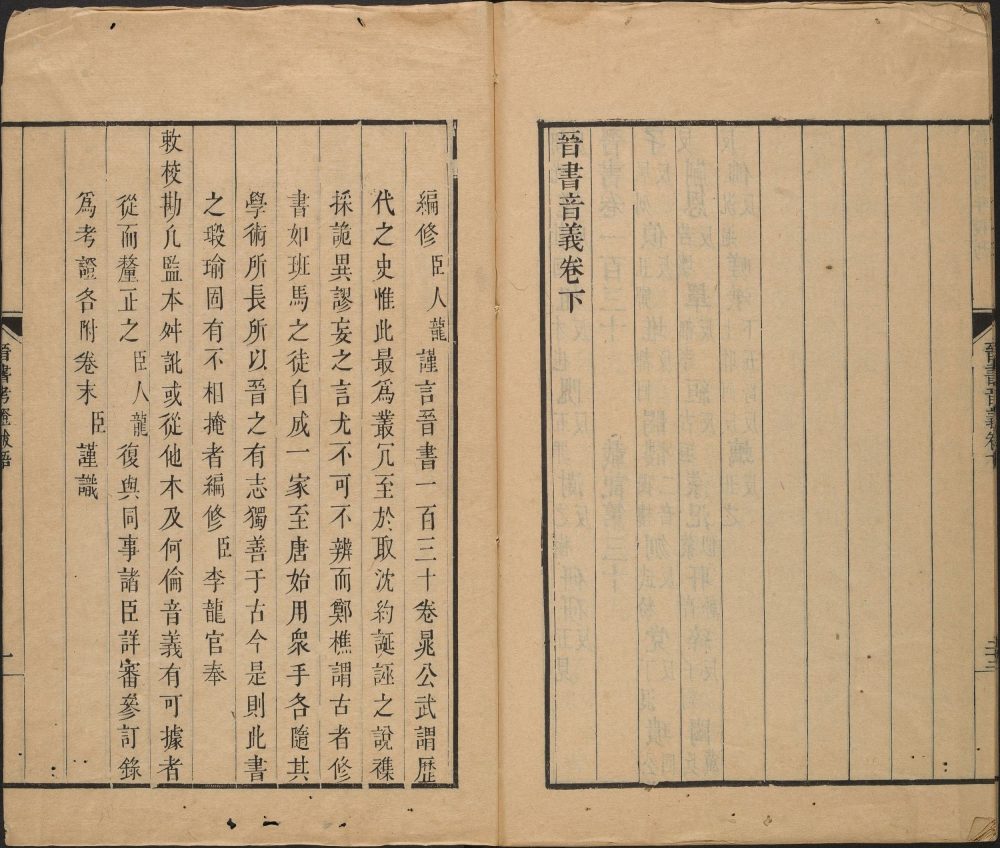 晉書音義卷下
晉書音義卷下
二十三
編修臣人龍謹言晉書一百三十卷晁公武謂歷
代之史惟此最爲叢冗至於取沈約誕誣之說襍
採詭異謬妄之言尤不可不辨而鄭樵謂古者修
書如班馬之徒自成一家至唐始用衆手各隨其
學術所長所以晉之有志獨善于古今是則此書
之瑕瑜固有不相掩者編修臣李龍官奉
敕校勘凢監本舛訛或從他本及何倫音義有可據者
從而釐正之臣人龍復與同事諸臣詳審參訂錄
爲考證各附卷末臣謹識
晉書考證跋語
一